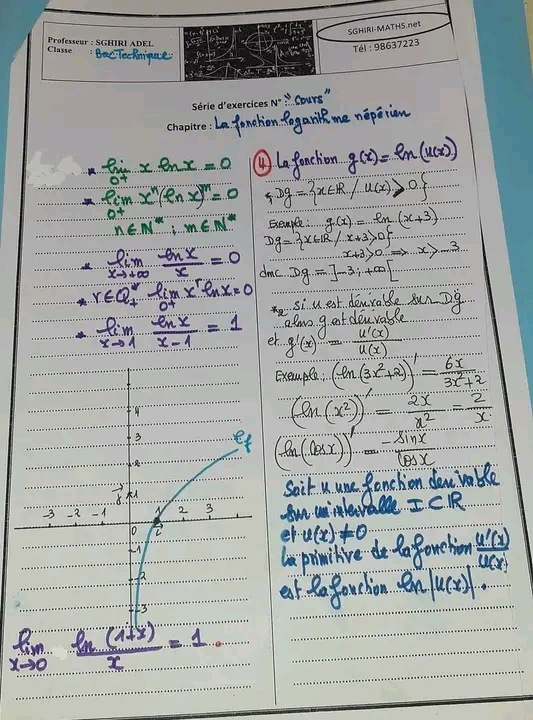 Professeur : SGHIRI ADEL
Classe : Bac Technique
SGHIRI-MATHS.net
Tél : 98637223
Série d'exercices N° : "Cours"
Chapitre : La fonction logarithme népérien
* lim 0+ x ln x = 0
* lim 0+ x^n (ln x)^m = 0
n ∈ N* ; m ∈ N*
* lim x→+∞ ln x / x = 0
* r ∈ Q*+ lim 0+ x^r ln x = 0
* lim x→1 ln x / (x-1) = 1
4
3
2
1
-3 -2 -1 0 1 2 3
-1
-2
-3
Cf
lim x→0 ln (1+x) / x = 1
4 La fonction g(x) = ln(u(x))
* Dg = {x ∈ IR / u(x) > 0}
Exemple : g(x) = ln (x+3)
Dg = {x ∈ IR / x+3 > 0}
x+3 > 0 ⟹ x > -3
donc Dg = ]-3 ; +∞[
* si u est dérivable sur Dg
alors g est dérivable
et g'(x) = u'(x) / u(x)
Exemple : (ln (3x²+2))' = 6x / (3x²+2)
(ln (x²))' = 2x / x² = 2 / x
(ln (cos x))' = -sin x / cos x
Soit u une fonction dérivable
sur un intervalle I ⊂ IR
et u(x) ≠ 0
la primitive de la fonction u'(x) / u(x)
est la fonction ln |u(x)|.